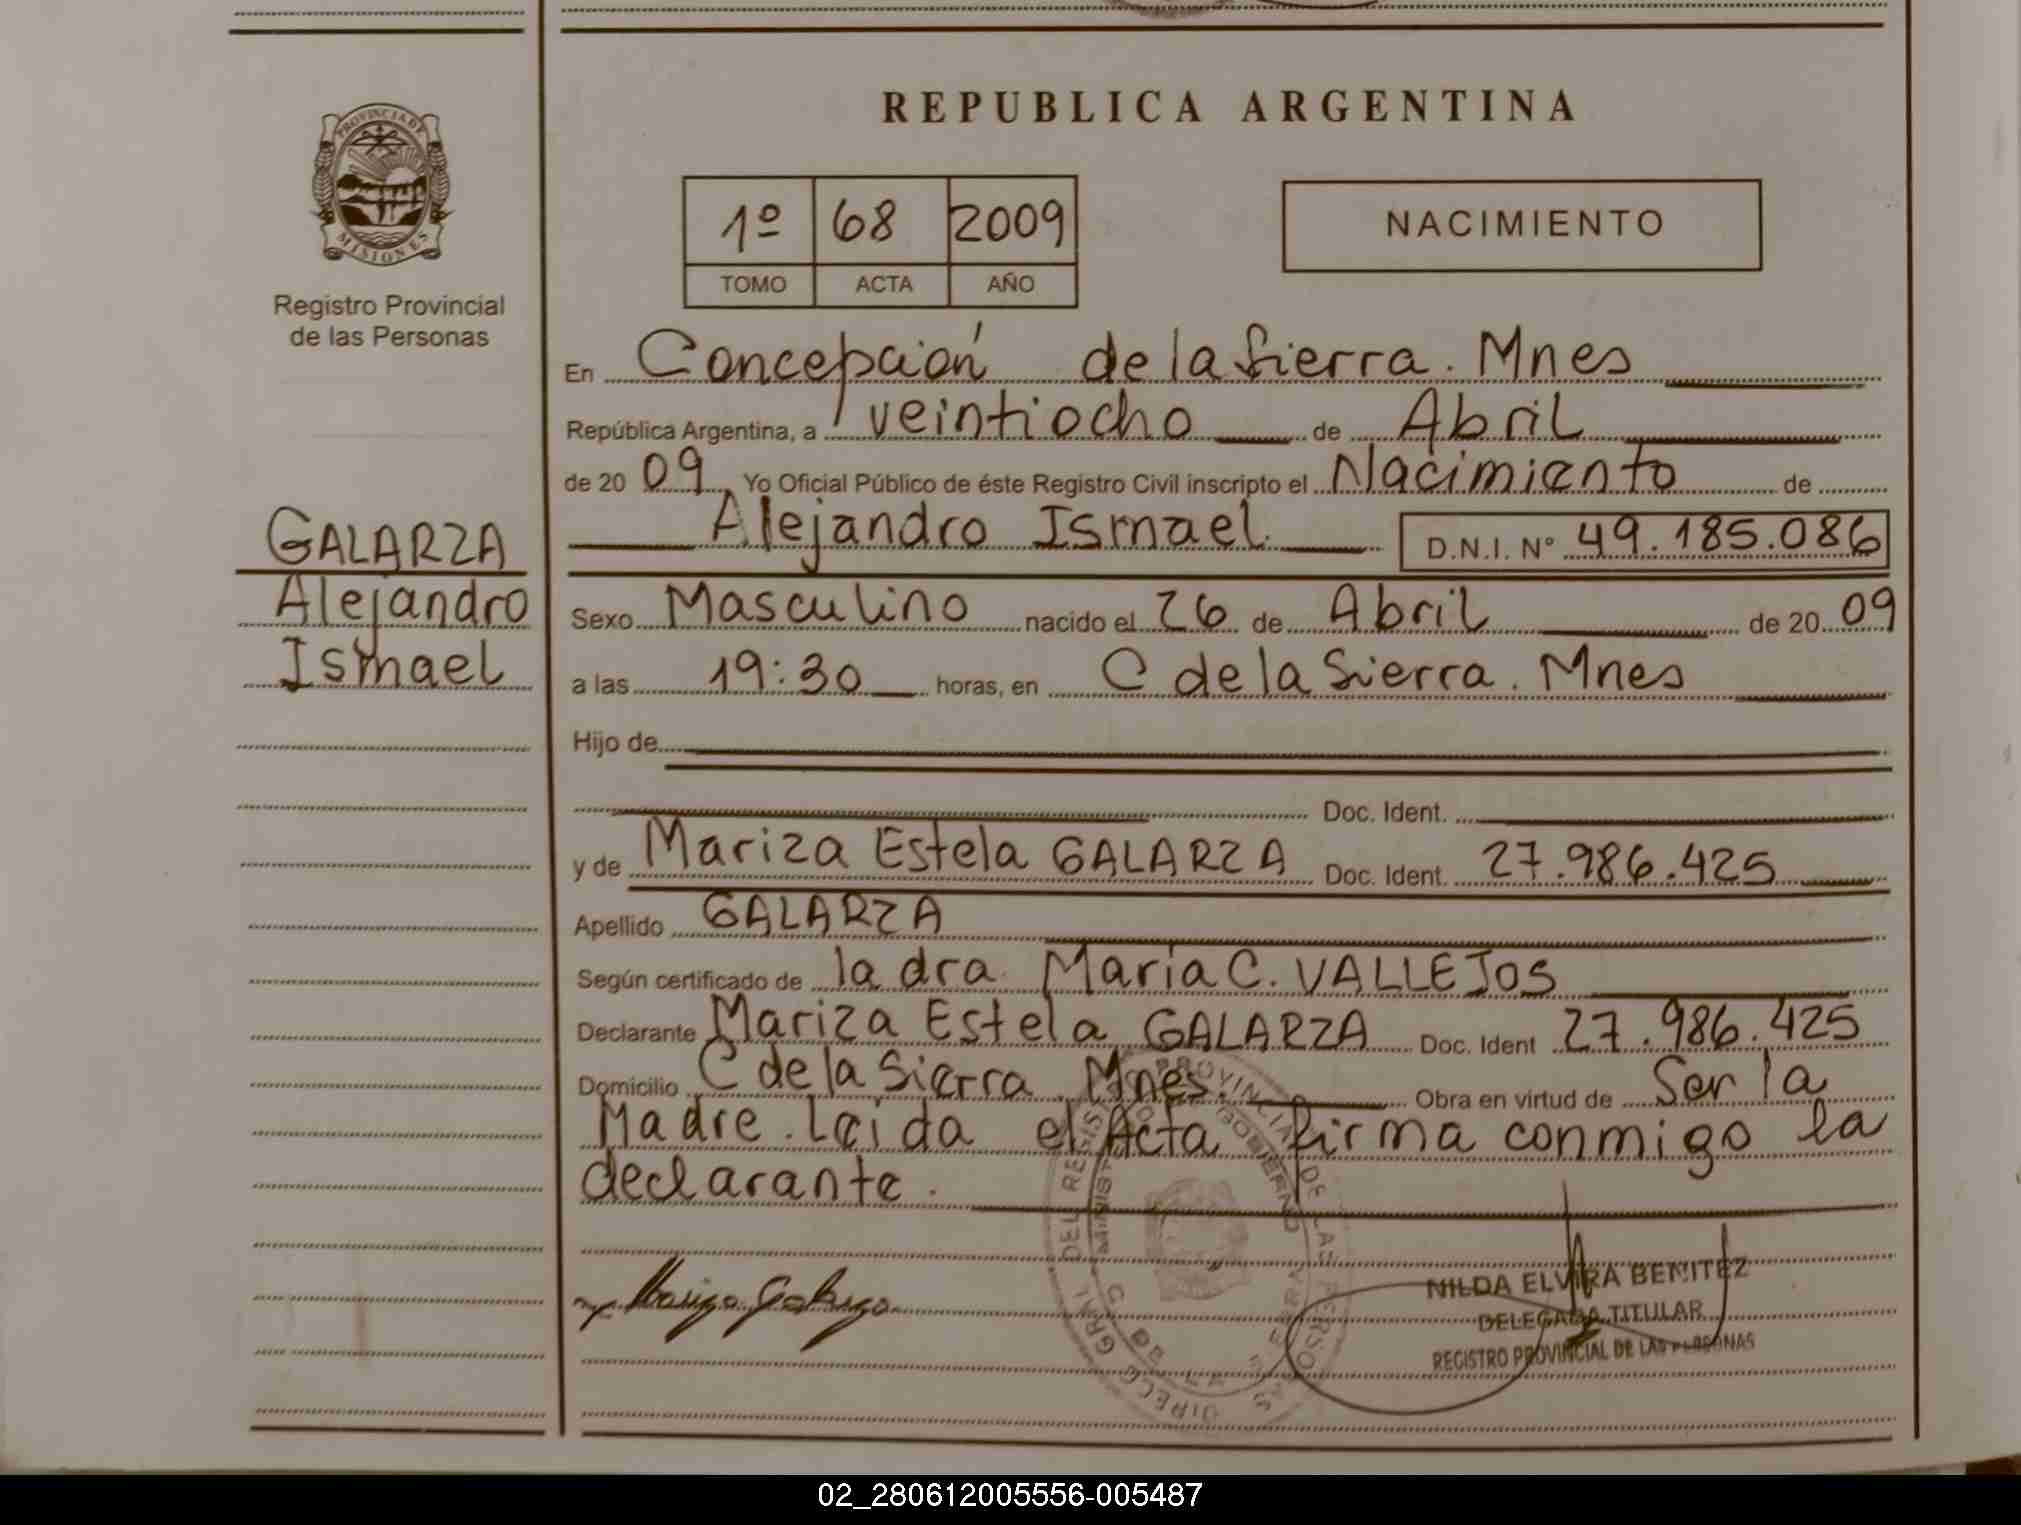 REPUBLICA ARGENTINA
PROVINCIA DE
MISIONES
Registro Provincial
de las Personas
1º 68 2009
TOMO ACTA AÑO
NACIMIENTO
En Concepción de la Sierra. Mnes
República Argentina, a veintiocho de Abril
de 20 09 Yo Oficial Público de éste Registro Civil inscripto el Nacimiento de
Alejandro Ismael D.N.I. Nº 49.185.086
GALARZA
Alejandro
Ismael
Sexo Masculino nacido el 26 de Abril de 20 09
a las 19:30 horas, en C de la Sierra. Mnes
Hijo de
Doc. Ident.
y de Mariza Estela GALARZA Doc. Ident. 27.986.425
Apellido GALARZA
Según certificado de la dra. María C. VALLEJOS
Declarante Mariza Estela GALARZA Doc. Ident 27.986.425
Domicilio C de la Sierra. Mnes. Obra en virtud de Ser la
Madre. Leida el Acta firma conmigo la
declarante.
NILDA ELVIRA BENITEZ
DELEGADA TITULAR
REGISTRO PROVINCIAL DE LAS PERSONAS
02_280612005556-005487